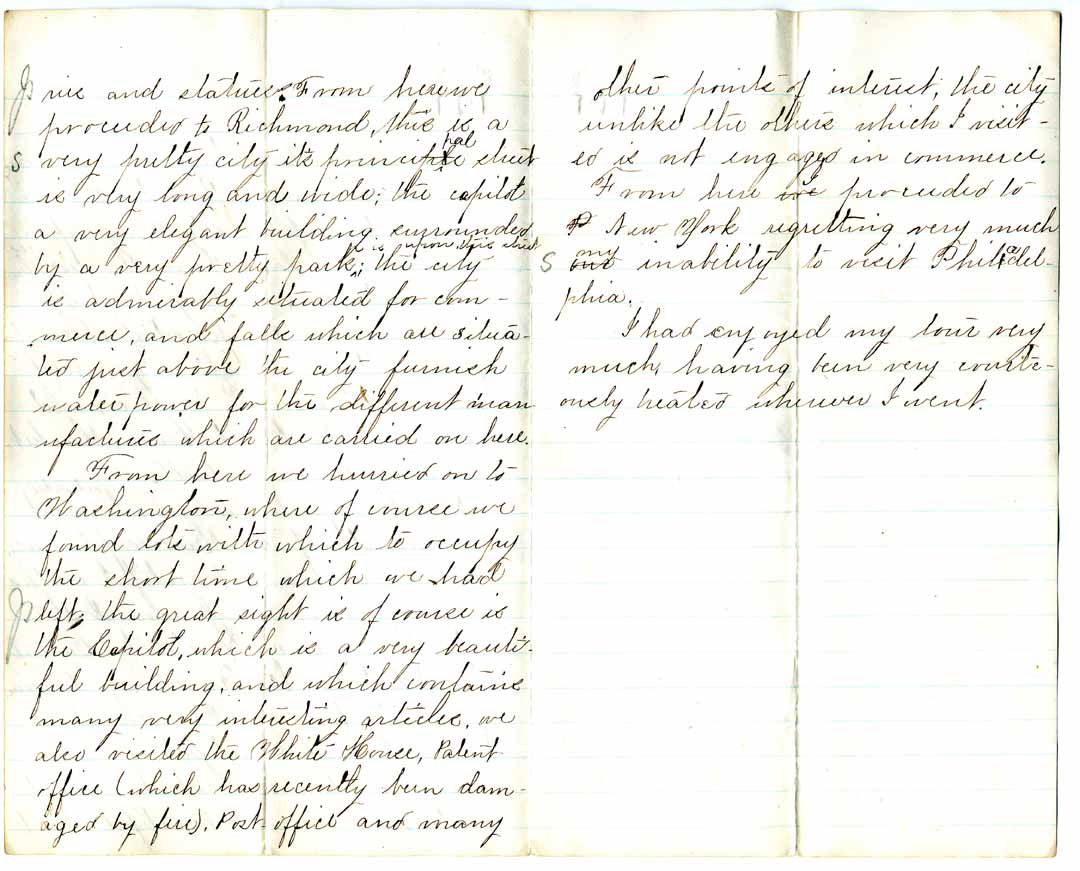 ries and statues. From here we
proceeded to Richmond, this is a
very pretty city it's principal street
is very long and wide; the capitol
a very elegant building surrounded
by a very pretty park, is upon this street; the city
is admirably situated for com-
merce, and falls which are situa-
ted just above the city furnish
water power for the different man-
ufactures which are carried on here.
From here we hurried on to
Washington, where of course we
found lots with which to occupy
the short time which we had
left, the great sight is of course is
the Capitol, which is a very beauti-
ful building, and which contains
many very interesting articles, we
also visited the White House, Patent
office (which has recently been dam-
aged by fire), Post office and many
other points of interest; the city
unlike the others which I visit-
ed is not engaged in commerce.
From here I proceeded to
New York regretting very much
my inability to visit Philadel-
phia.
I had enjoyed my tour very
much, having been very courte-
ously treated wherever I went.